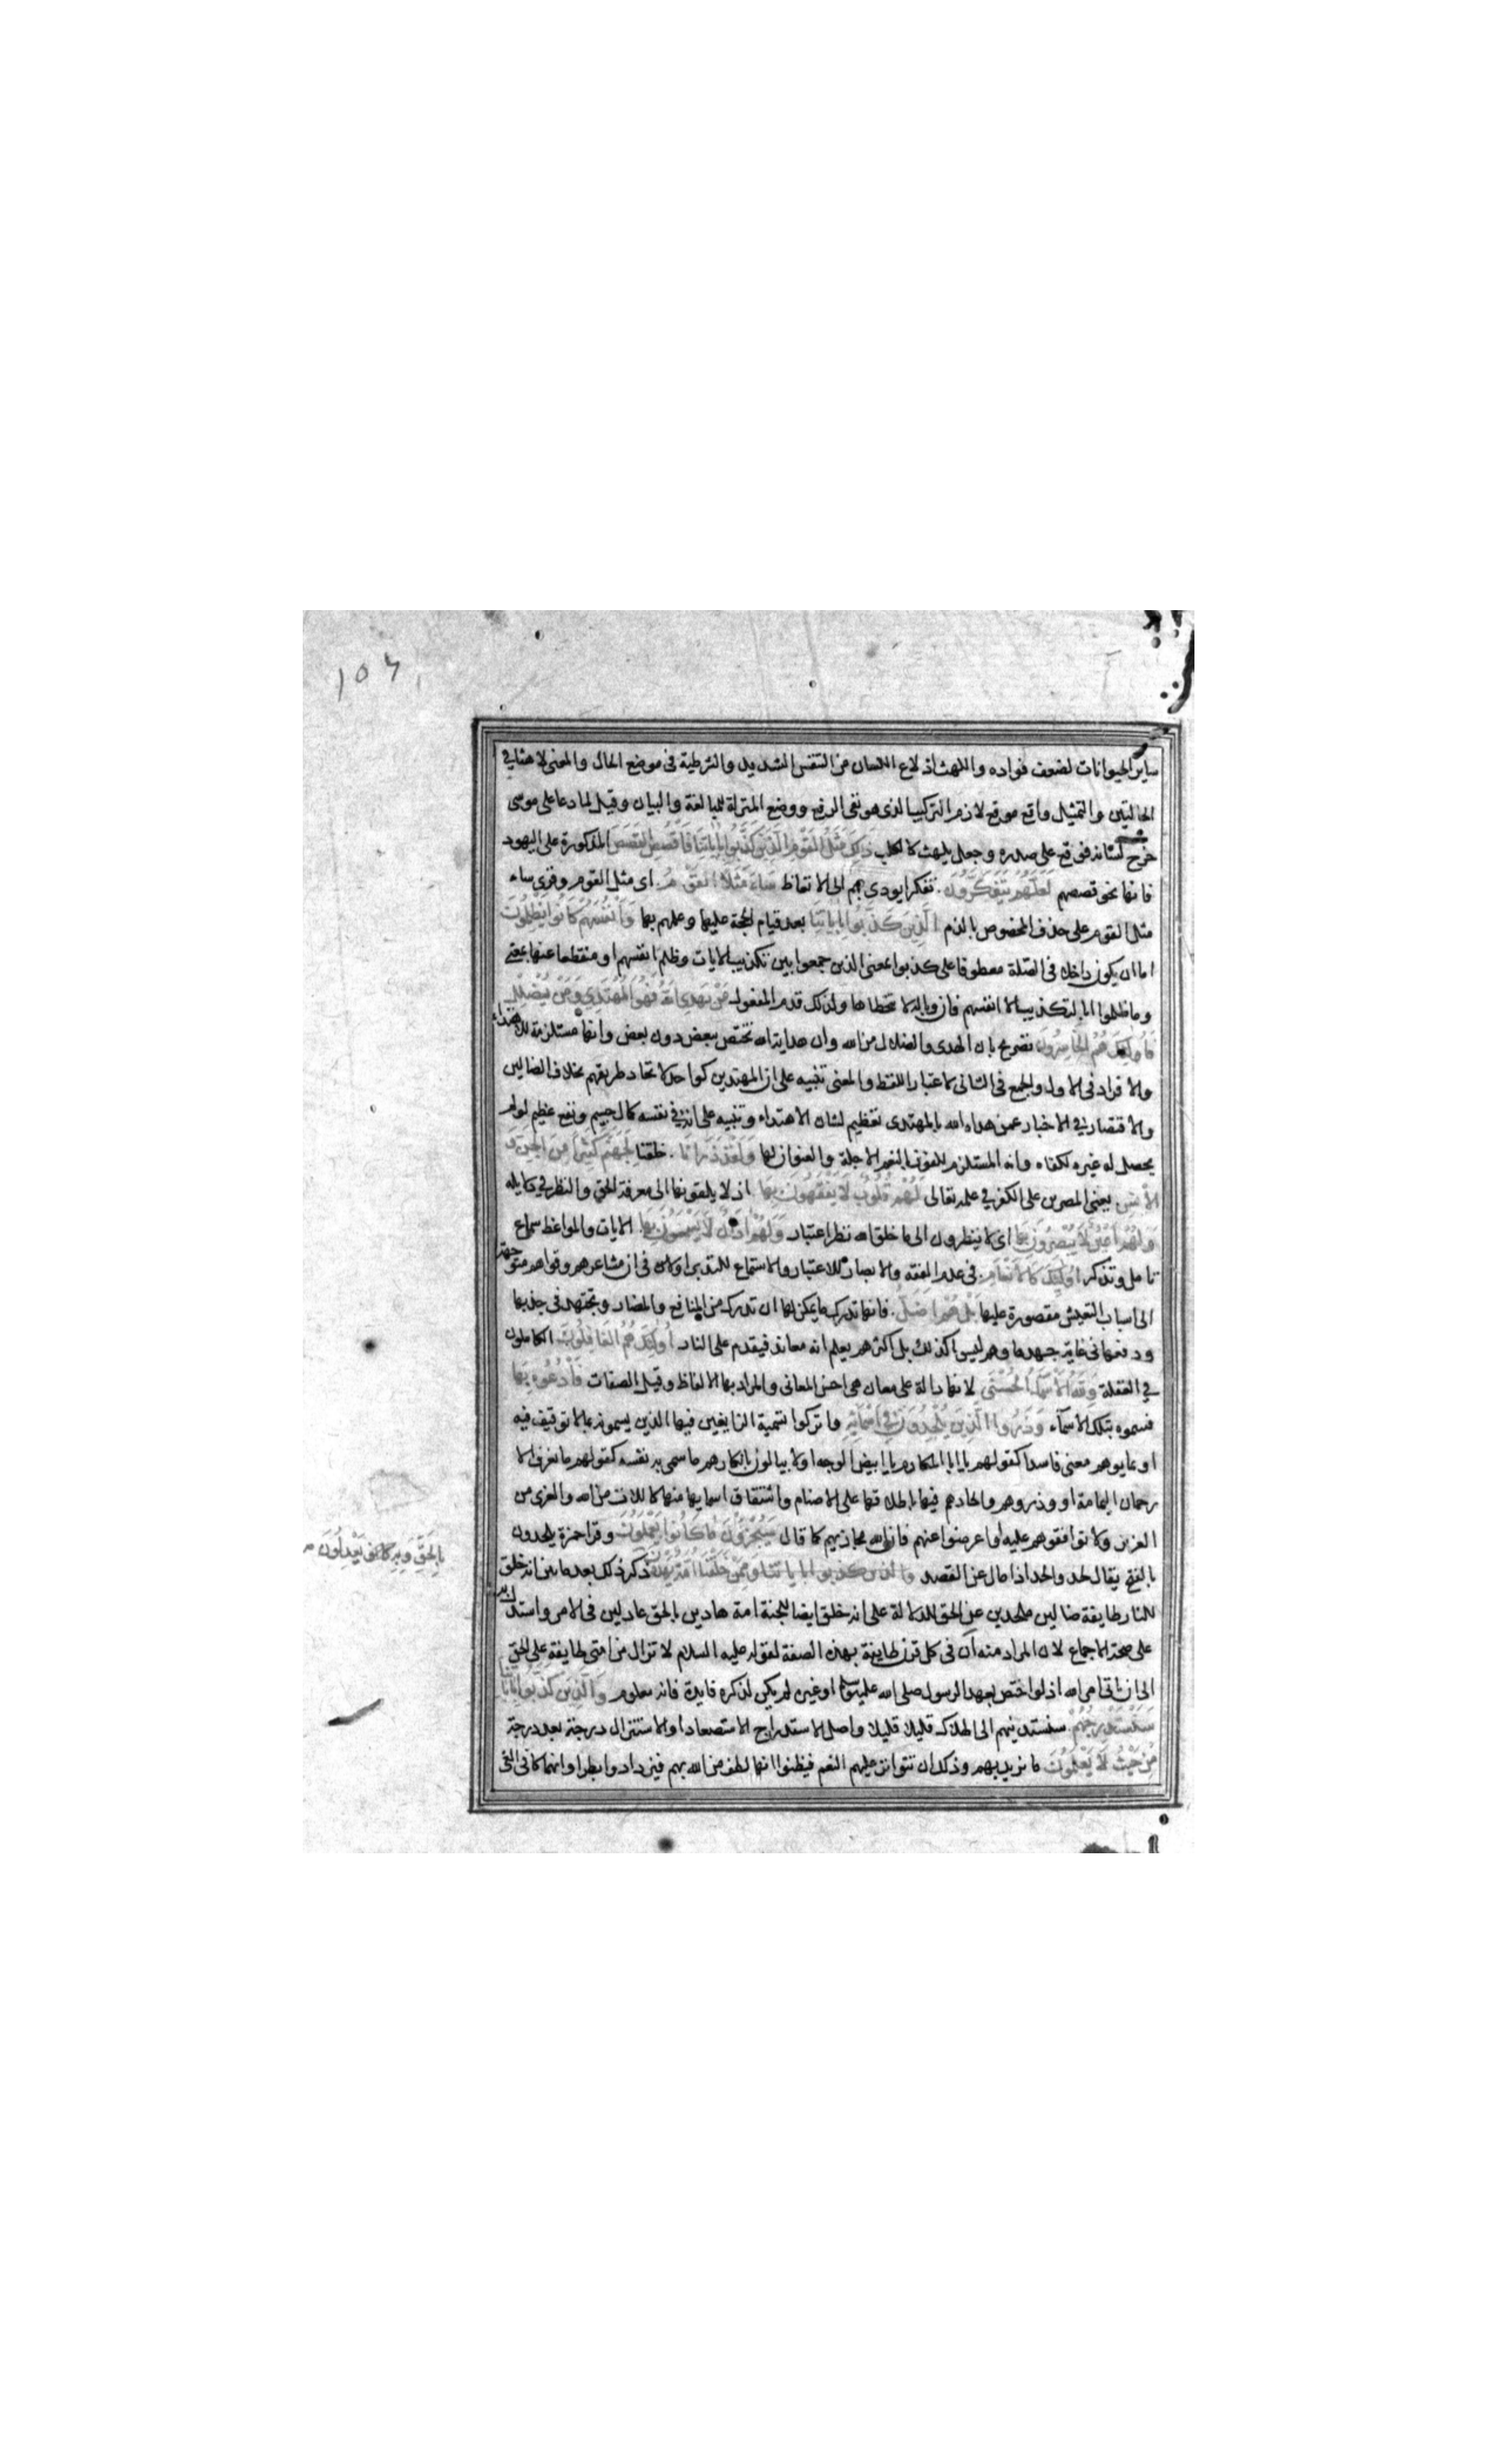 ١٥٦
ساير الحيوانات لضعف فواده واللهث اذلاع اللسان من التنفس الشديد والشرطية فى موضع الحال والمعنى لاهثا في
الحالتين والتمثيل واقع موقع لازم التركيب الذى هو نفى الرفع ووضع المنزلة للمبالغة والبيان وقيل لما دعا على موسى
خرج لسانه فوقع على صدره وجعل يلهث كالكلب ذَلِكَ مَثَلُ الْقَوْمِ الَّذِينَ كَذَّبُوا بِايَاتِنَا فَاقْصُصِ الْقَصَصَ المذكورة على اليهود
فانها نحو قصصهم لَعَلَّهُمْ يَتَفَكَّرُونَ تفكرا يودى بهم الى الاتعاظ سَاءَ مَثَلًا الْقَوْمُ اى مثل القوم وقرئ ساء
مثل القوم على حذف المخصوص بالذم الَّذِينَ كَذَّبُوا بِايَاتِنَا بعد قيام الحجة عليها وعلمهم بها وَاَنْفُسَهُمْ كَانُوا يَظْلِمُونَ
اما ان يكون داخلا فى الصلة معطوفا على كذبوا بمعنى الذين جمعوا بين تكذيب الايات وظلم انفسهم او منقطعا عنها بمعنى
وما ظلموا الا بالتكذيب الا انفسهم فان وباله لا يتخطاها ولذلك قدم المفعول مَنْ يَهْدِى اللهُ فَهُوَ الْمُهْتَدِي وَمَنْ يُضْلِلْ
فَاُولَئِكَ هُمُ الْخَاسِرُونَ تصريح بان الهدى والضلال من الله وان هداية الله تختص ببعض دون بعض وانها مستلزمة للاهتداء
والافراد فى الاول والجمع فى الثانى لاعتبار اللفظ والمعنى تنبيه على ان المهتدين كواحد لاتحاد طريقهم بخلاف الضالين
والاقتصار في الاخبار عمن هداه الله بالمهتدى تعظيم لشان الاهتداء وتنبيه على انه في نفسه كمال جسيم ونفع عظيم لو لم
يحصل له غيره لكفاه وانه المستلزم للفوز بالنعم الاجلة والعنوان لها وَلَقَدْ ذَرَاْنَا خلقنا لِجَهَنَّمَ كَثِيرًا مِنَ الْجِنِّ وَ
الْاِنْسِ يعنى المصرين على الكفر في علمه تعالى لَهُمْ قُلُوبٌ لَا يَفْقَهُونَ بِهَا اذ لا يلقونها الى معرفة الحق والنظر في دلايله
وَلَهُمْ اَعْيُنٌ لَا يُبْصِرُونَ بِهَا اى لا ينظرون الى ما خلق الله نظر اعتبار وَلَهُمْ اذَانٌ لَا يَسْمَعُونَ بِهَا الايات والمواعظ سماع
تامل وتذكر اُولَئِكَ كَالْاَنْعَامِ فى عدم الفقه والابصار للاعتبار والاستماع للتدبر او فى ان مشاعرهم وقواهم متوجهة
الى اسباب التعيش مقصورة عليها بَلْ هُمْ اَضَلُّ فانها تدرك ما يمكن لها ان تدرك من المنافع والمضار وتجتهد فى جذبها
ودفعها فى غاية جهدها وهم ليسوا كذلك بل اكثرهم يعلم انه معاند فيقدم على النار اُولَئِكَ هُمُ الْغَافِلُونَ الكاملون
في الغفلة وَلِلَّهِ الْاَسْمَاءُ الْحُسْنَى لانها دالة على معان هى احسن المعانى والمراد بها الالفاظ وقيل الصفات فَادْعُوهُ بِهَا
فسموه بتلك الاسماء وَذَرُوا الَّذِينَ يُلْحِدُونَ فِي اَسْمَائِهِ واتركوا تسمية الزايغين فيها الذين يسمونه بما لا توقيف فيه
او بما يوهم معنى فاسدا كقولهم يا ابا المكارم يا ابيض الوجه او لا يبالون بانكارهم ما سمى به نفسه كقولهم ما نعرف الا
رحمان اليمامة او وذروهم والحادهم فيها باطلاقها على الاصنام واشتقاق اسمايها منها كاللات من الله والعزى من
العزيز ولا توافقوهم عليه او اعرضوا عنهم فان الله مجازيهم كما قال سَيُجْزَوْنَ مَا كَانُوا يَعْمَلُونَ وقرا حمزة يلحدون
بالفتح يقال لحد والحد اذا مال عن القصد والذين كذبوا بايا تنا وَمِمَّنْ خَلَقْنَا اُمَّةٌ يَهْدُونَ ذكر ذلك بعد ما بين انه خلق
بِالْحَقِّ وَبِهِ يَعْدِلُونَ
للنار طايفة ضالين ملحدين عن الحق للدلالة على انه خلق ايضا للجنة امة هادين بالحق عادلين فى الامر واستدل به
على صحة الاجماع لان المراد منه ان فى كل قرن طايفة بهذه الصفة لقوله عليه السلام لا تزال من امتى طايفة على الحق
الى ان ياتى امر الله اذ لو اختص بعهد الرسول صلى الله عليه وسلم او غيره لم يكن لذكره فايدة فانه معلوم وَالَّذِينَ كَذَّبُوا بِايَاتِنَا
سَنَسْتَدْرِجُهُمْ سنستدينهم الى الهلاك قليلا قليلا واصل الاستدراج الاستصعاد او الاستنزال درجة بعد درجة
مِنْ حَيْثُ لَا يَعْلَمُونَ ما نريد بهم وذلك ان تتواتر عليهم النعم فيظنوا انها لطف من الله بهم فيزدادوا بطرا وانهماكا فى الغى